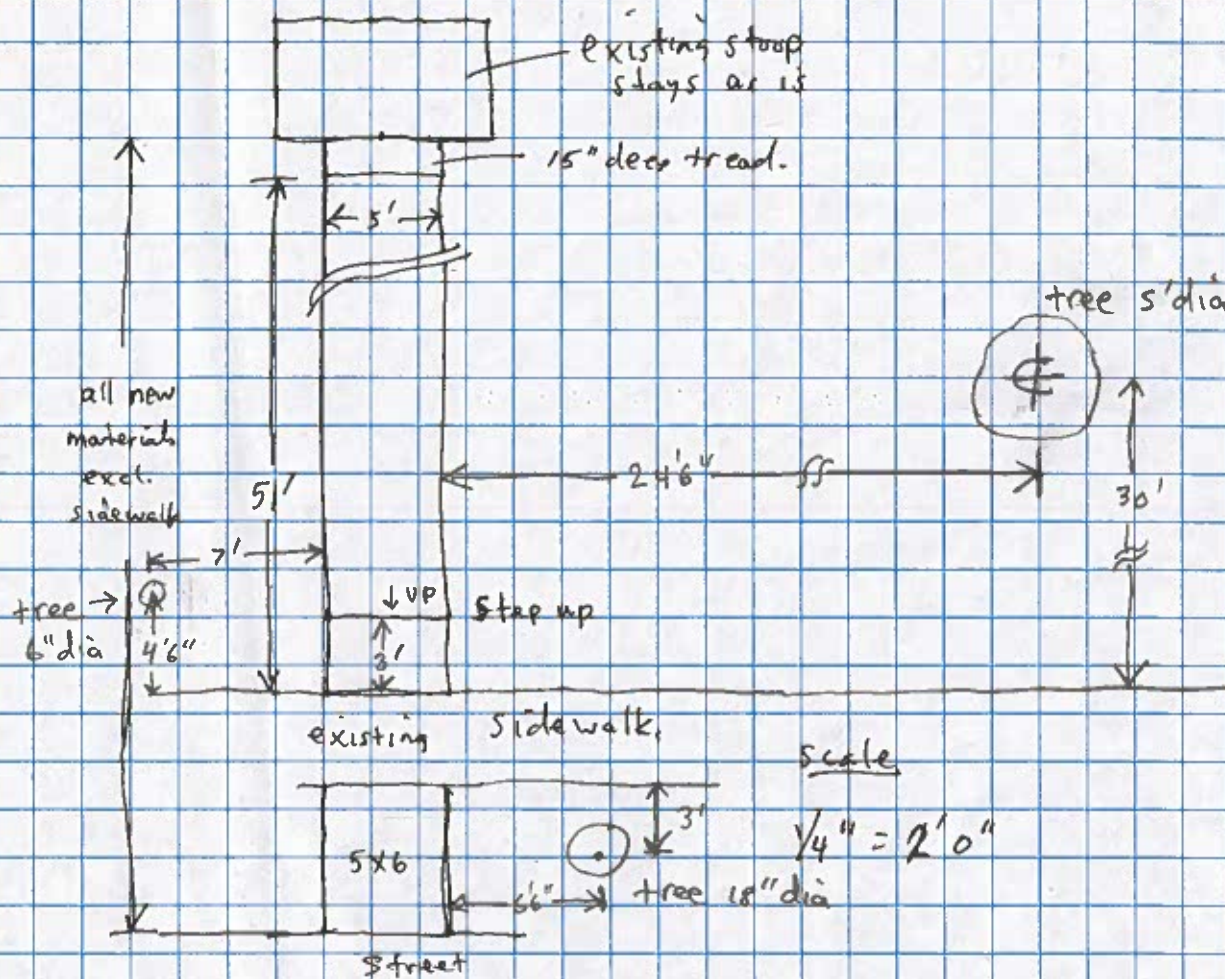 existing stoop
stays as is
15" deep tread.
5'
tree 5' dia
℄
all new
materials
excl.
sidewalk
51'
24'6"
30'
7'
tree
6" dia
4'6"
up
Step up
3'
existing sidewalk.
Scale
1/4" = 2'0"
3'
5x6
6'6"
tree 18" dia
Street